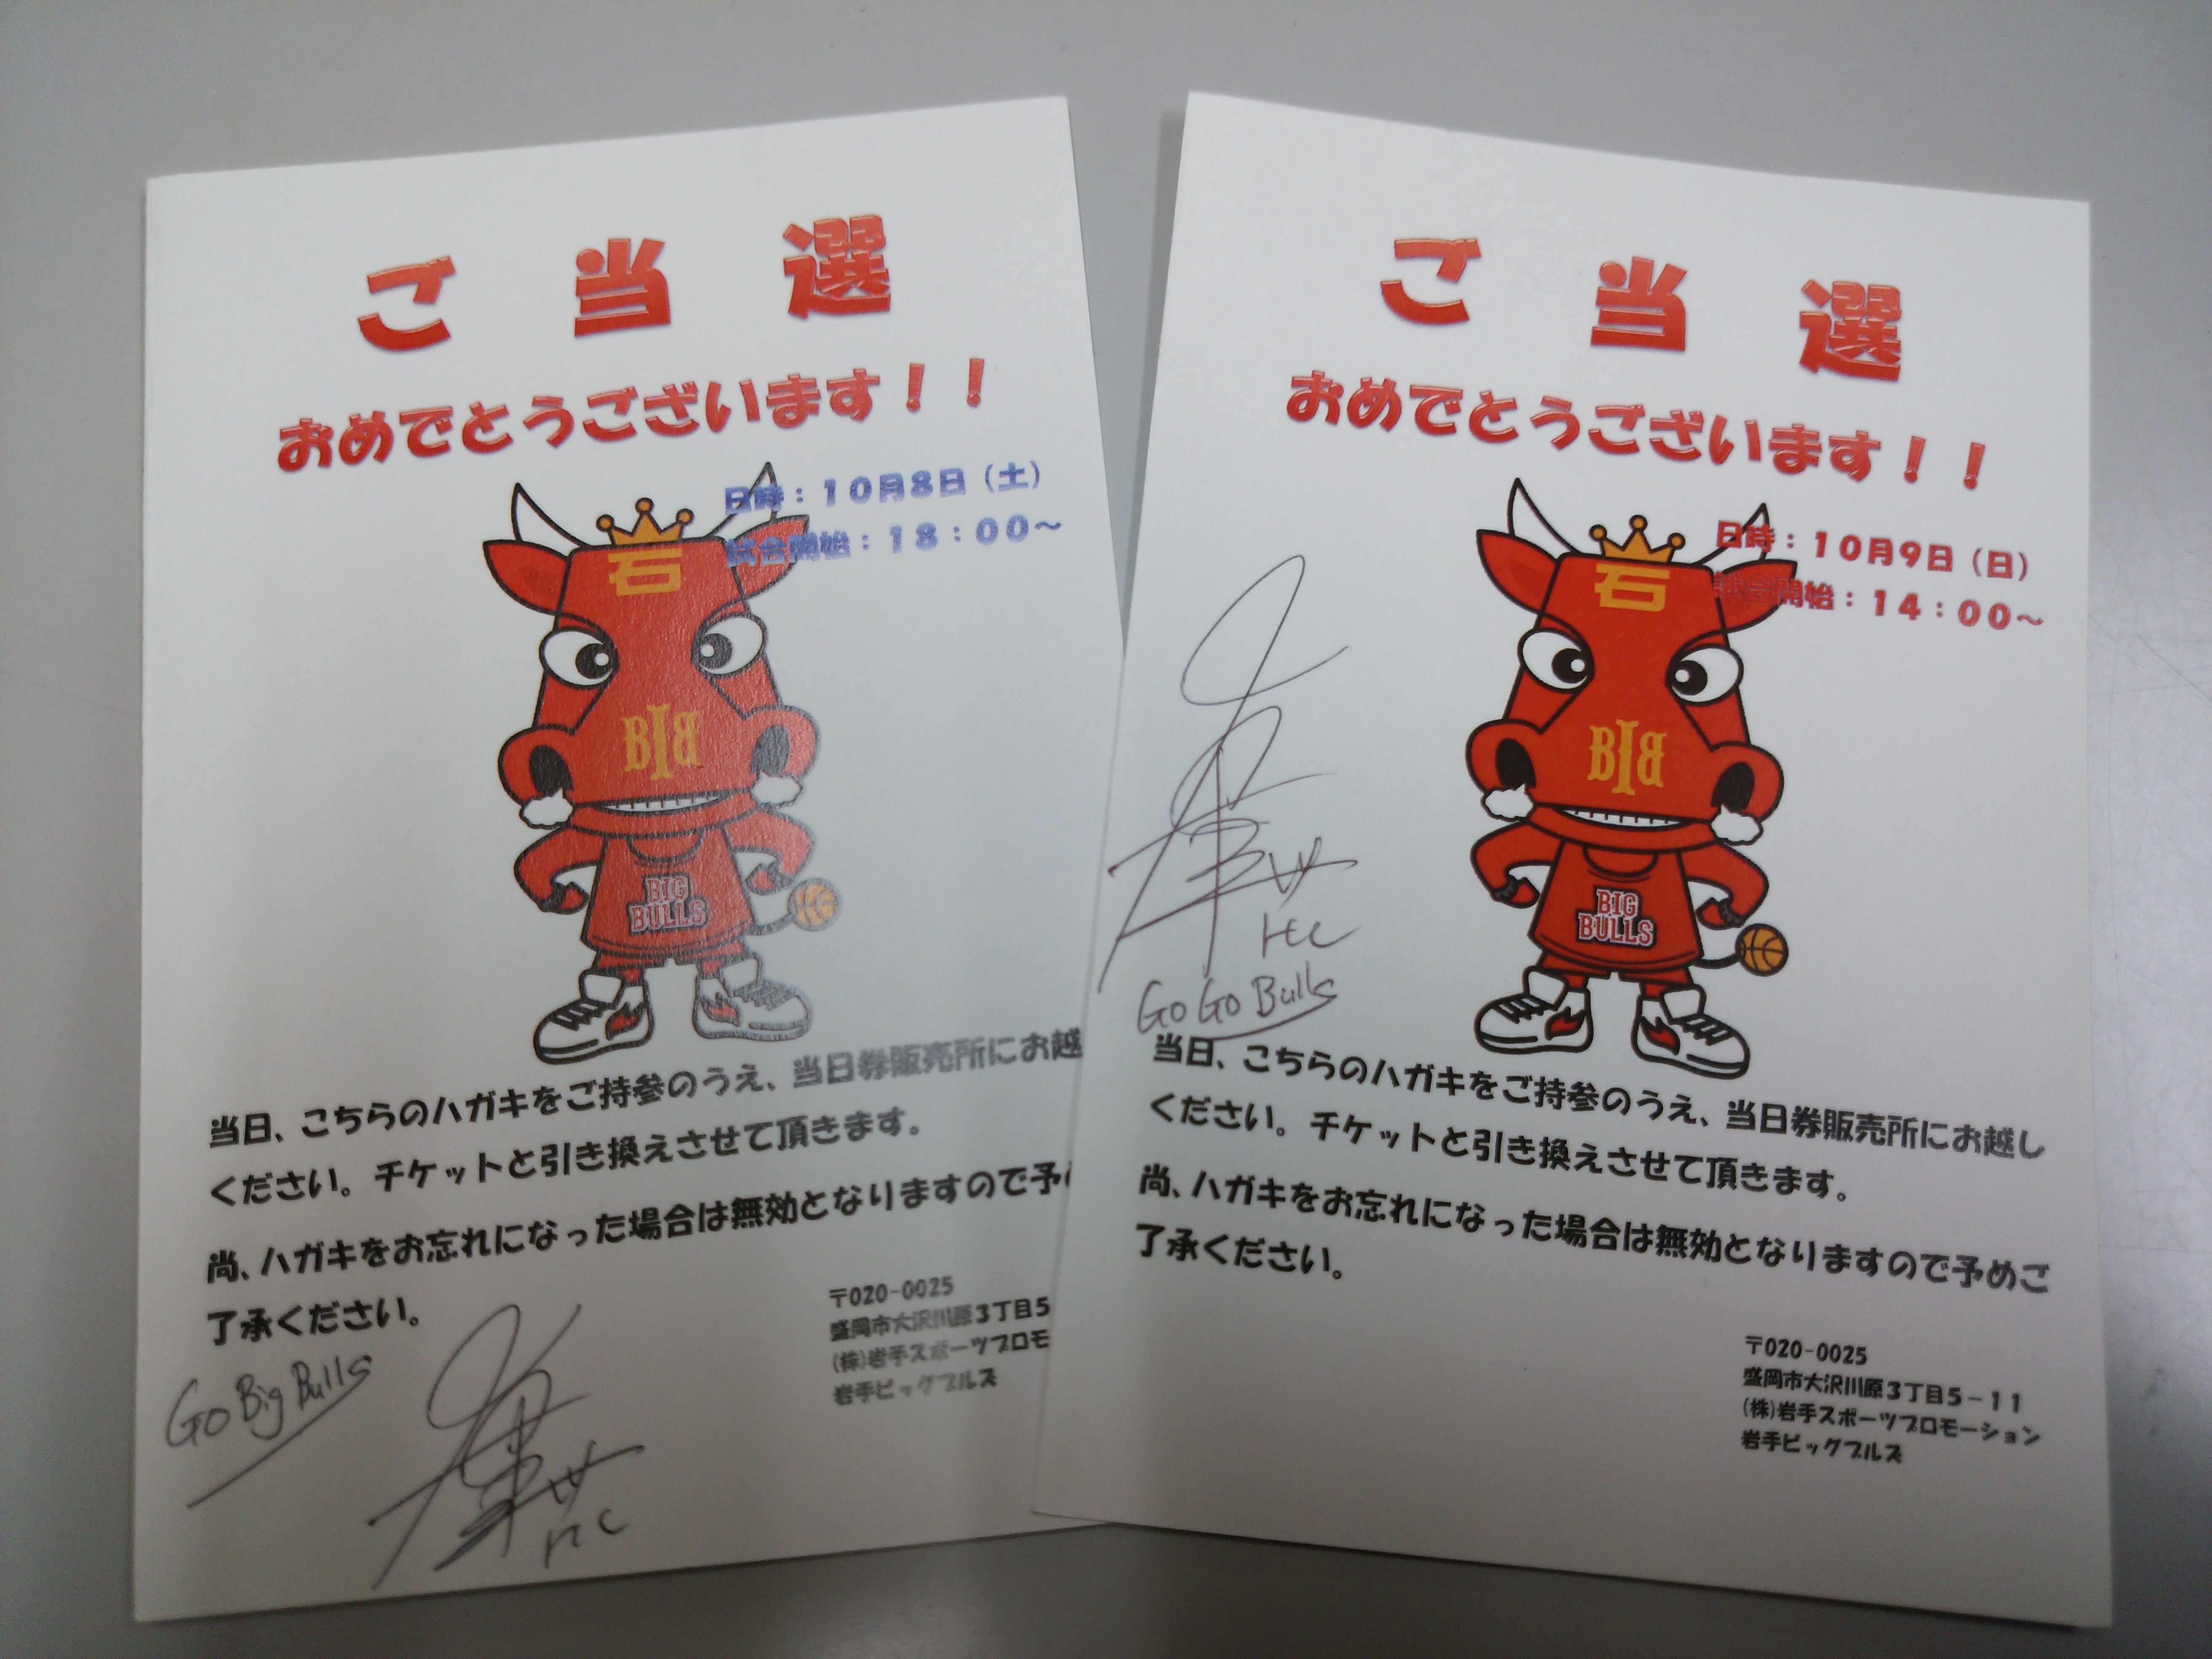 ご当選
おめでとうございます！！
日時：１０月８日（土）
試合開始：１８：００～
岩
BIB
BIG
BULLS
当日、こちらのハガキをご持参のうえ、当日券販売所にお越
ください。チケットと引き換えさせて頂きます。
尚、ハガキをお忘れになった場合は無効となりますので予
了承ください。
〒020-0025
盛岡市大沢川原３丁目５
(株)岩手スポーツプロモ
岩手ビッグブルズ
Go Big Bulls
HC
ご当選
おめでとうございます！！
日時：１０月９日（日）
試合開始：１４：００～
岩
BIB
BIG
BULLS
HC
Go Go Bulls
当日、こちらのハガキをご持参のうえ、当日券販売所にお越し
ください。チケットと引き換えさせて頂きます。
尚、ハガキをお忘れになった場合は無効となりますので予めご
了承ください。
〒020-0025
盛岡市大沢川原３丁目５－１１
(株)岩手スポーツプロモーション
岩手ビッグブルズ